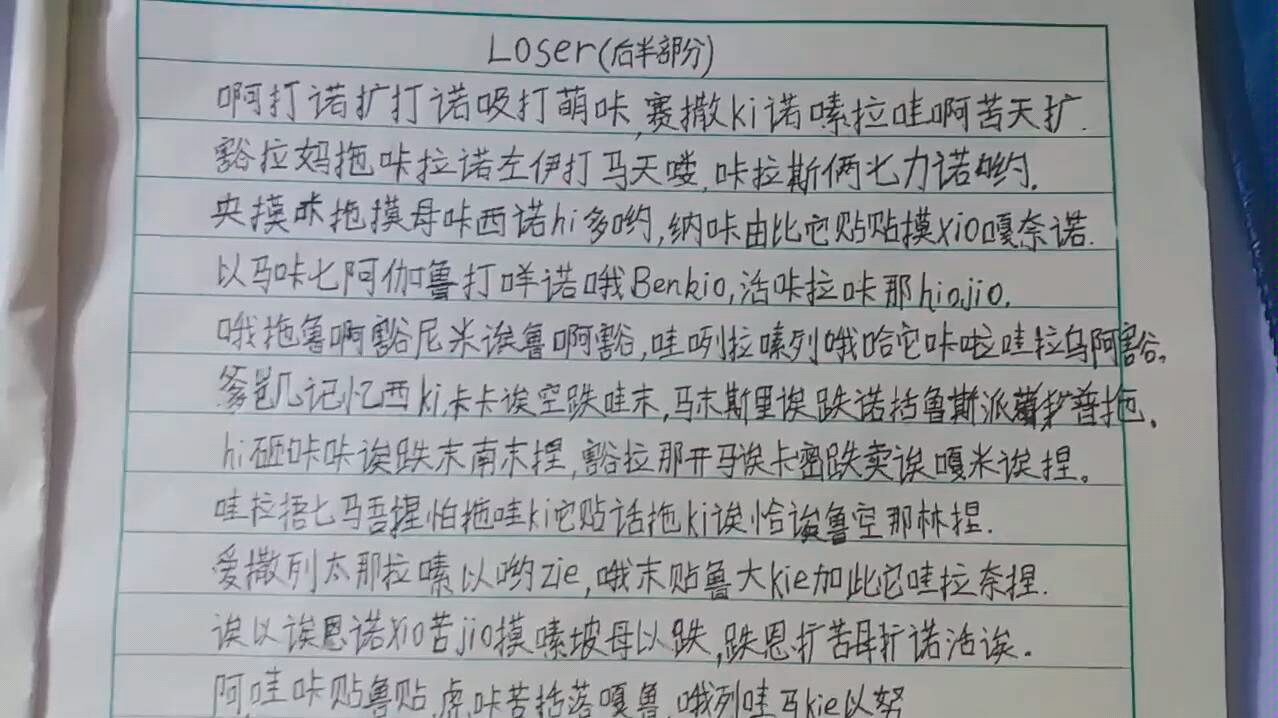 Loser(后半部分)
啊打诺扩打诺吸打萌咔,赛撒ki诺嗦拉哇啊苦天扩.
豁拉妈拖咔拉诺左伊打马天喽,咔拉斯俩七力诺哟.
央摸咔拖摸母咔西诺hi多哟,纳咔由比它贴贴摸xio嘎奈诺.
以马咔七阿伽噜打咩诺哦Benkio,活咔拉咔那hiojio.
哦拖鲁啊豁尼米诶鲁啊豁,哇咧拉嗦列哦哈它咔啦哇拉乌阿豁。
爹爸几记忆西ki,卡卡诶空跌哇末,马末斯里诶跌诺括鲁斯派普拖.
hi砸咔咔诶跌末南末捏,豁拉那开马诶卡密跌卖诶嘎米诶捏。
哇拉捂七马吾捏怕拖哇ki它贴话拖ki诶恰诶鲁空那林捏.
爱撒列太那拉嗦以哟zie,哦末贴鲁大kie加比它哇拉奈捏.
诶以诶恩诺xio苦jio摸嗦坡母以跌,跌恩扩苦耳扩诺活诶.
阿哇咔贴鲁贴,虎咔苦括落嘎鲁,哦列哇马kie以努